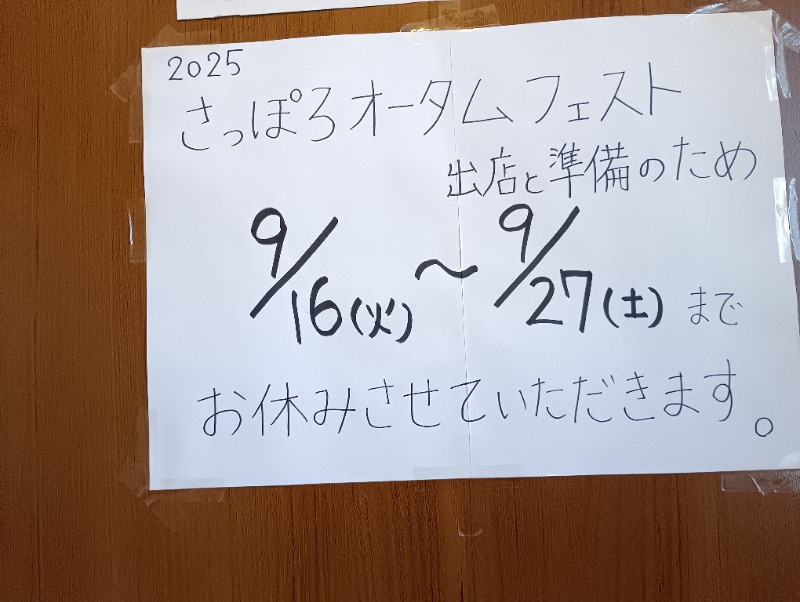 2025
さっぽろオータムフェスト
出店と準備のため
9/16(火)〜9/27(土)まで
お休みさせていただきます。